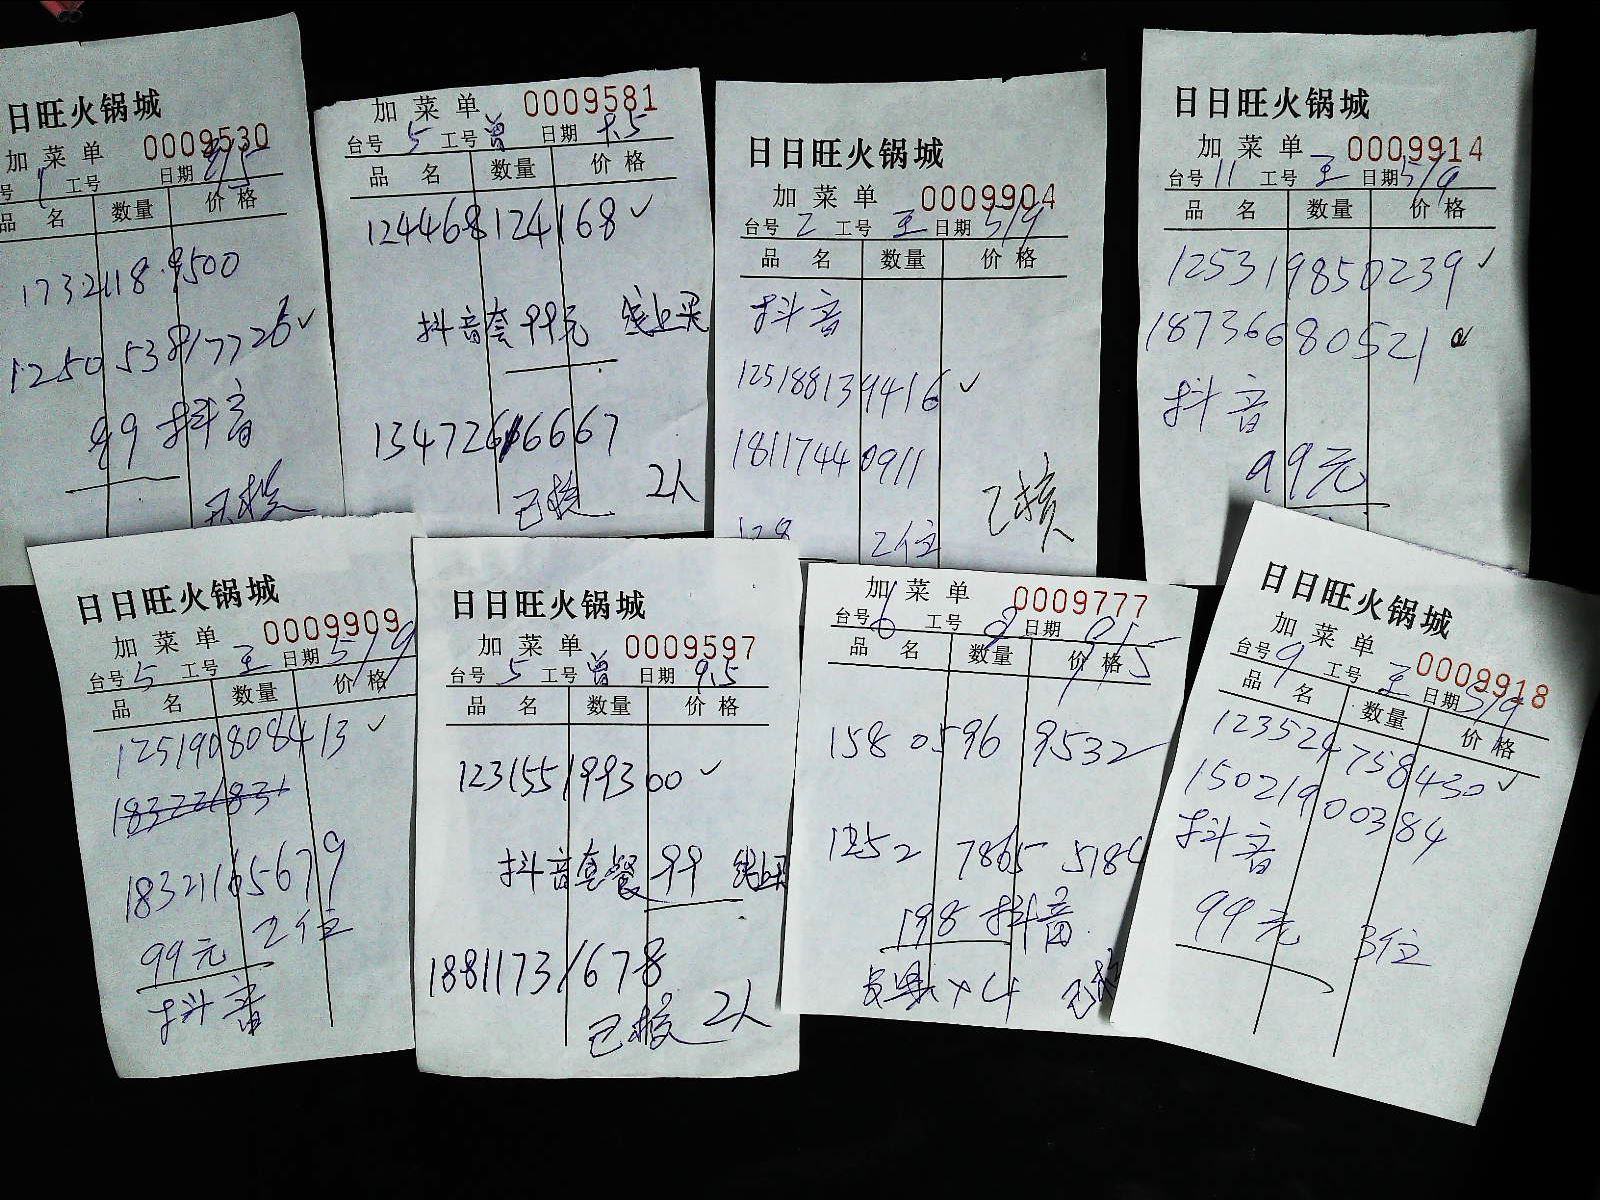 日旺火锅城
加菜单 0009530
号 1 工号 日期 9/5
品名 数量 价格
1732118 9500
1250 538 17726✓
99 抖音
已核
加菜单 0009581
台号 5 工号 曾 日期 9.5
品名 数量 价格
124468124168✓
抖音套99元 线上买
1347266667
已核 2人
日日旺火锅城
加菜单 0009904
台号 2 工号 王 日期 5/9
品名 数量 价格
抖音
125188139416✓
18117440911
128 2位 已核
日日旺火锅城
加菜单 0009914
台号 11 工号 王 日期 5/9
品名 数量 价格
125319850239✓
18736680521
抖音
99元
日日旺火锅城
加菜单 0009909
台号 5 工号 王 日期 5/9
品名 数量 价格
125190808413✓
18321165679
99元 2位
抖音
日日旺火锅城
加菜单 0009597
台号 5 工号 曾 日期 9.5
品名 数量 价格
123155199300✓
抖音套餐 99 线上买
18811731678
已核 2人
加菜单 0009777
台号 6 工号 日期 9/5
品名 数量 价格
158 0596 9532
1252 7865 518
198 抖音
×4 已核
日日旺火锅城
加菜单 0009918
台号 9 工号 王 日期 5/9
品名 数量 价格
123524758430✓
15021900384
抖音
99元 3位